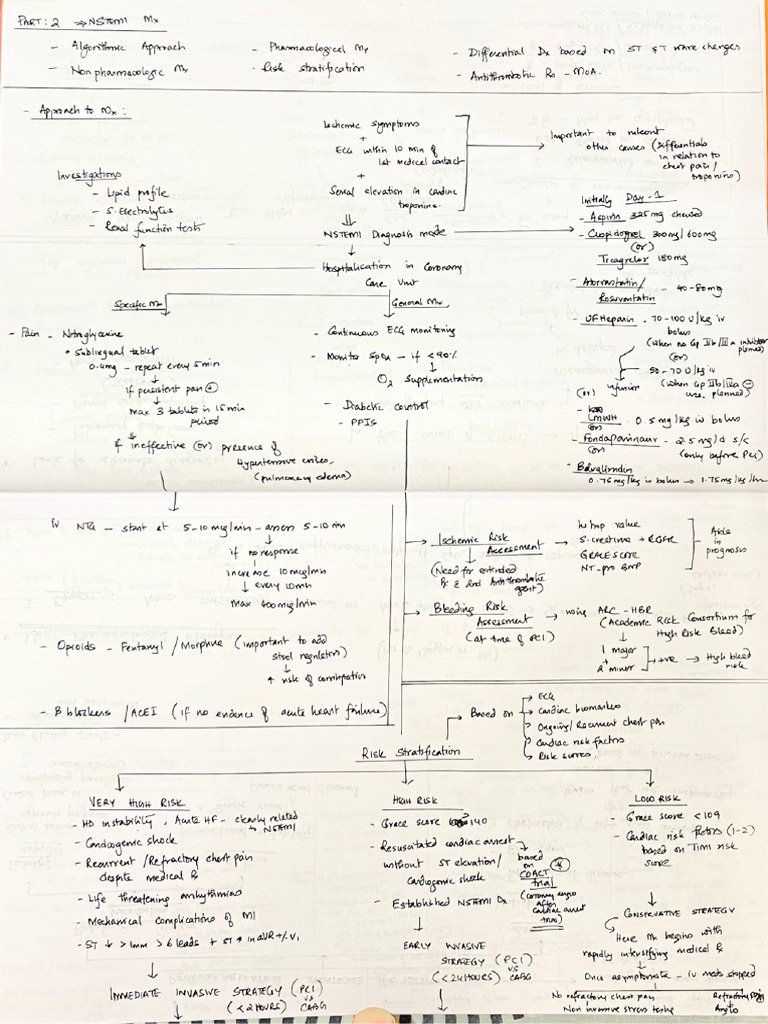 PART: 2 → NSTEMI Mx
- Algorithmic Approach
- Pharmacological Mx
- Differential Dx based on ST & T wave changes
- Nonpharmacologic Mx
- Risk stratification
- Antithrombotic Rx - MoA.
- Approach to Mx:
Ischemic symptoms
+
ECG within 10 min of
1st medical contact
+
Serial elevation in cardiac
troponins.
Important to ruleout
other causes (Differentials
in relation to
chest pain/
troponins)
NSTEMI Diagnosis made
Investigations
- Lipid profile
- S. Electrolytes
- Renal function tests
Hospitalisation in Coronary
Care Unit
Initially Day-1
- Aspirin 325 mg chewed
- Clopidogrel 300mg/600mg
(or)
Ticagrelor 180mg
- Atorvastatin/
Rosuvastatin - 40-80mg
- UFHeparin - 70-100 U/kg iv
bolus
(when no Gp IIb/IIIa inhibitor
planned)
(or)
50-70 U/kg iv
(When Gp IIb/IIIa ⊖
use planned)
infusion
(or)
- LMWH 0.5mg/kg iv bolus
(or)
- Fondaparinaux - 2.5mg/d s/c
(or) (only before PCI)
- Bivalirudin
0.75mg/kg iv bolus → 1.75mg/kg/hr
Specific Mx
General Mx
- Pain - Nitroglycerine
• Sublingual tablet
0.4mg - repeat every 5min
if persistent pain ⊕
max 3 tablets in 15 min
period
If ineffective (or) presence of
Hypertensive crises,
(pulmonary edema)
iv NTG - start at 5-10 mcg/min - assess 5-10 min
if no response
increase 10mcg/min
every 10min
Max 400mcg/min
- Opioids - Fentanyl/Morphine (important to add
stool regulators)
↑ risk of constipation
- B blockers/ACEI (if no evidence of acute heart failure)
- Continuous ECG monitoring
- Monitor SpO2 - if <90%
O2 Supplementation
- Diabetic control
- PPIs
- Ischemic Risk
Assessment
(Need for extended
Rx & 2nd Antithrombotic
agent)
hs Tnp value
S. creatinine + eGFR
GRACE SCORE
NT-pro BNP
Aids
in
prognosis
- Bleeding Risk
Assessment
(At time of PCI)
using ARC-HBR
(Academic Risk Consortium for
High Risk Bleed)
1 major
+
2 minor
+ve → High bleed
risk
Risk Stratification
Based on
ECG
Cardiac biomarkers
Ongoing/Recurrent chest pain
Cardiac risk factors
Risk scores.
VERY HIGH RISK
- HD instability, Acute HF - clearly related
to NSTEMI
- Cardiogenic shock
- Recurrent/Refractory chest pain
despite medical Rx
- Life threatening arrhythmias
- Mechanical complications of MI
- ST ↓ >1mm >6 leads + ST ↑ in aVR +/- V1
IMMEDIATE INVASIVE STRATEGY (PCI
vs
(<2 HOURS) CABG)
HIGH RISK
- Grace score 140
- Resuscitated cardiac arrest
without ST elevation/
Cardiogenic shock
based
on
COACT
trial
(coronary angio
after
cardiac arrest
trial)
- Established NSTEMI Dx
EARLY INVASIVE
STRATEGY (PCI
vs
(<24 HOURS) CABG
LOW RISK
- Grace score <109
- Cardiac risk factors (1-2)
based on TIMI risk
score
CONSERVATIVE STRATEGY
Here Mx begins with
rapidly intensifying medical Rx
Once asymptomatic - iv meds stopped
No refractory chest pain
Non invasive stress testing
Refractory
Angio